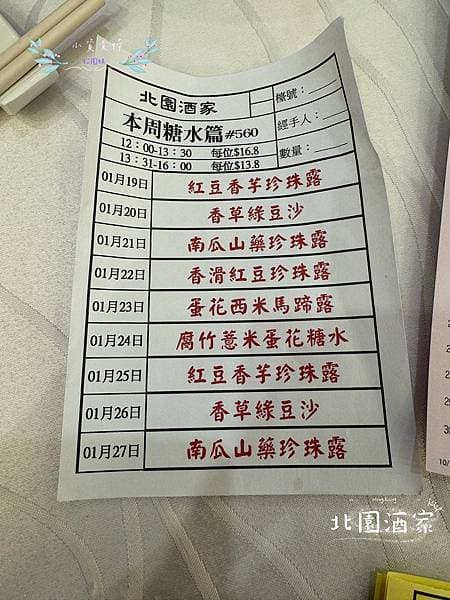 北園酒家
檯號：
本周糖水篇#560
經手人：
12：00-13：30 每位$16.8
13：31-16：00 每位$13.8
數量：
01月19日 紅豆香芋珍珠露
01月20日 香草綠豆沙
01月21日 南瓜山藥珍珠露
01月22日 香滑紅豆珍珠露
01月23日 蛋花西米馬蹄露
01月24日 腐竹薏米蛋花糖水
01月25日 紅豆香芋珍珠露
01月26日 香草綠豆沙
01月27日 南瓜山藥珍珠露
北園酒家